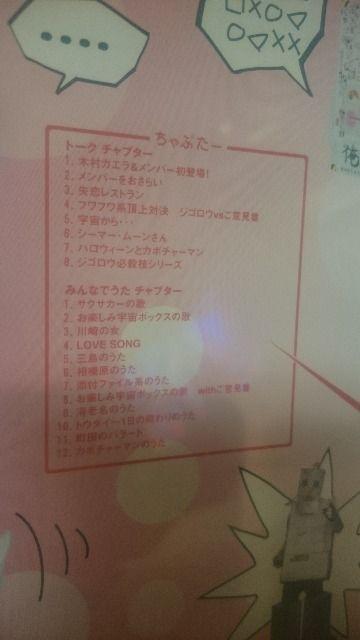 ••••
□×○△
○▽××
ちゃぷたー
トーク チャプター
1. 木村カエラ&メンバー初登場!
2. メンバーをおさらい
3. 失恋レストラン
4. フワフワ系頂上対決 ジゴロウvsご意見番
5. 宇宙から・・・
6. シーマー・ムーンさん
7. ハロウィーンとカボチャーマン
8. ジゴロウ必殺技シリーズ
みんなでうた チャプター
1. サクサカーの歌
2. お楽しみ宇宙ボックスの歌
3. 川崎の女
4. LOVE SONG
5. 三島のうた
6. 相模原のうた
7. 添付ファイル系のうた
8. お楽しみ宇宙ボックスの歌 withご意見番
9. 海老名のうた
10. トウダイ〜1日の終わりのうた
11. 町田のバラード
12. カボチャーマンのうた
俺